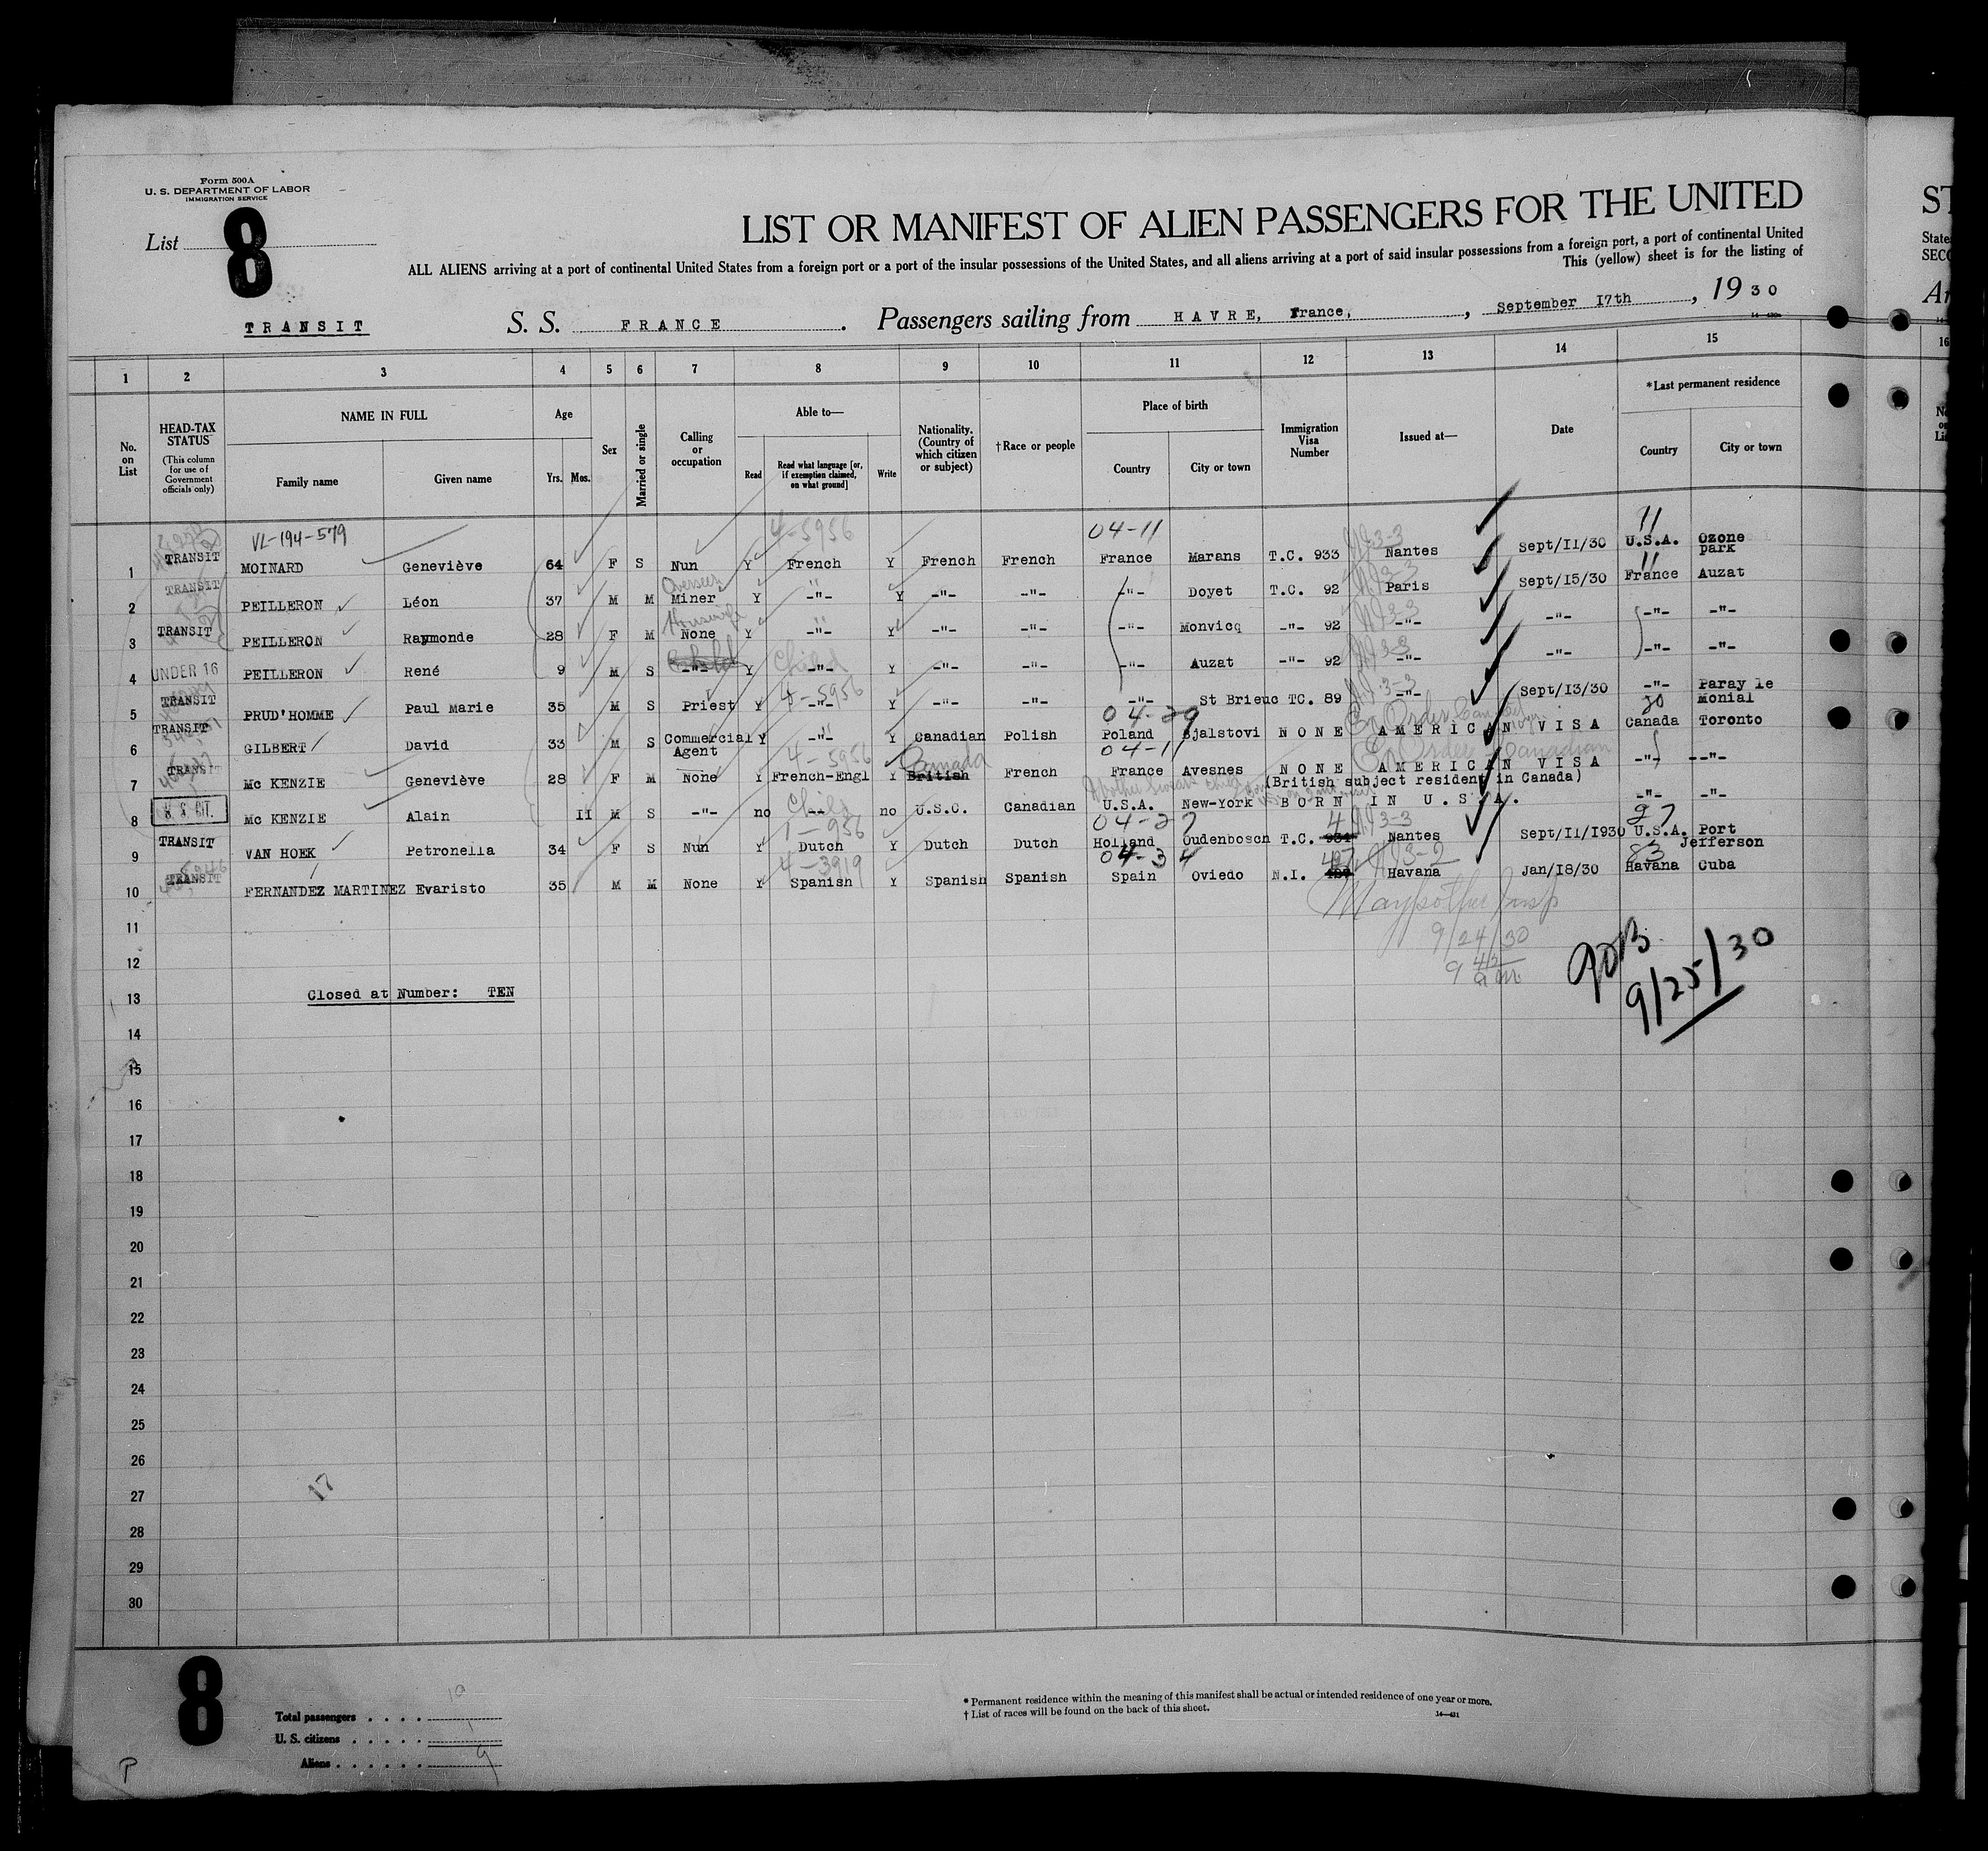 Form 500A
U. S. DEPARTMENT OF LABOR
IMMIGRATION SERVICE
List 8
LIST OR MANIFEST OF ALIEN PASSENGERS FOR THE UNITED
ALL ALIENS arriving at a port of continental United States from a foreign port or a port of the insular possessions of the United States, and all aliens arriving at a port of said insular possessions from a foreign port, a port of continental United
This (yellow) sheet is for the listing of
TRANSIT S. S. FRANCE. Passengers sailing from HAVRE, France, , September I7th , 1930
1 2 3 4 5 6 7 8 9 10 11 12 13 14 15 16
No. on List
HEAD-TAX STATUS (This column for use of Government officials only)
NAME IN FULL Family name Given name
Age Yrs. Mos.
Sex
Married or single
Calling or occupation
Able to— Read Read what language [or, if exemption claimed, on what ground] Write
Nationality. (Country of which citizen or subject)
†Race or people
Place of birth Country City or town
Immigration Visa Number
Issued at—
Date
*Last permanent residence Country City or town
VL-194-579 4-5956 04-11 11
1 TRANSIT MOINARD Geneviève 64 F S Nun Y French Y French French France Marans T.C. 933 Nantes Sept/II/30 U.S.A. Ozone park
Overseer 11
2 TRANSIT PEILLERON Léon 37 M M Miner Y -"- Y -"- -"- -"- Doyet T.C. 92 Paris Sept/I5/30 France Auzat
Housewife
3 TRANSIT PEILLERON Raymonde 28 F M None Y -"- Y -"- -"- -"- Monvicq -"- 92 -"- -"- -"- -"-
Child
4 UNDER 16 PEILLERON René 9 M S -"- Y -"- Y -"- -"- -"- Auzat -"- 92 -"- -"- -"- -"-
4-5956
5 TRANSIT PRUD'HOMME Paul Marie 35 M S Priest Y -"- Y -"- -"- -"- St Brieuc TC. 89 -"- Sept/I3/30 -"- Paray le Monial
04-29 20
6 TRANSIT GILBERT David 33 M S Commercial Agent Y -"- Y Canadian Polish Poland Bjalstovi NONE AMERICAN VISA Canada Toronto
4-5956 Canada 04-11
7 TRANSIT Mc KENZIE Geneviève 28 F M None Y French-Engl Y British French France Avesnes NONE AMERICAN VISA -"- -"-
(British subject resident in Canada)
Child
8 U S CIT. Mc KENZIE Alain II M S -"- no -- no U.S.C. Canadian U.S.A. New-York BORN IN U.S.A. -"- -"-
1-956 04-27 27
9 TRANSIT VAN HOEK Petronella 34 F S Nun Y Dutch Y Dutch Dutch Holland Oudenbosch T.C. 934 Nantes Sept/II/I930 U.S.A. Port Jefferson
4-3919 04-34 83
10 TRANSIT FERNANDEZ MARTINEZ Evaristo 35 M M None Y Spanish Y Spanish Spanish Spain Oviedo N.I. Havana Jan/I8/30 Havana Cuba
11
9/24/30
12
9/25/30
13 Closed at Number: TEN
14
15
16
17
18
19
20
21
22
23
24
25
26
27
17
28
29
30
8
Total passengers . . . . 10
U. S. citizens . . . . . 1
Aliens . . . . . . 9
P
* Permanent residence within the meaning of this manifest shall be actual or intended residence of one year or more.
† List of races will be found on the back of this sheet.
14—431